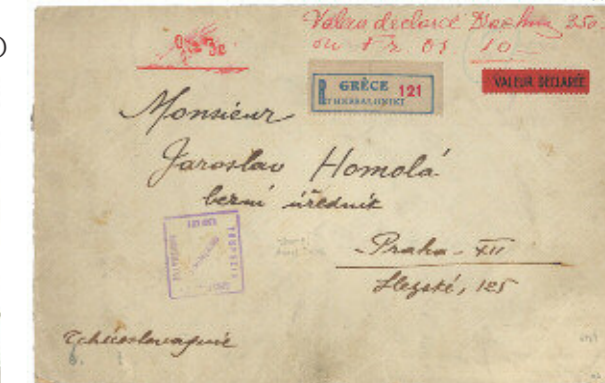 Valeur declaré Drachm 350.-
ou Fr. or 10-
GRÈCE 121
R THESSALONIKI
VALEUR DÉCLARÉE
Monsieur
Jaroslav Homolá
berní úředník
-Praha-XII
Slezské, 125
Tchécoslovaquie